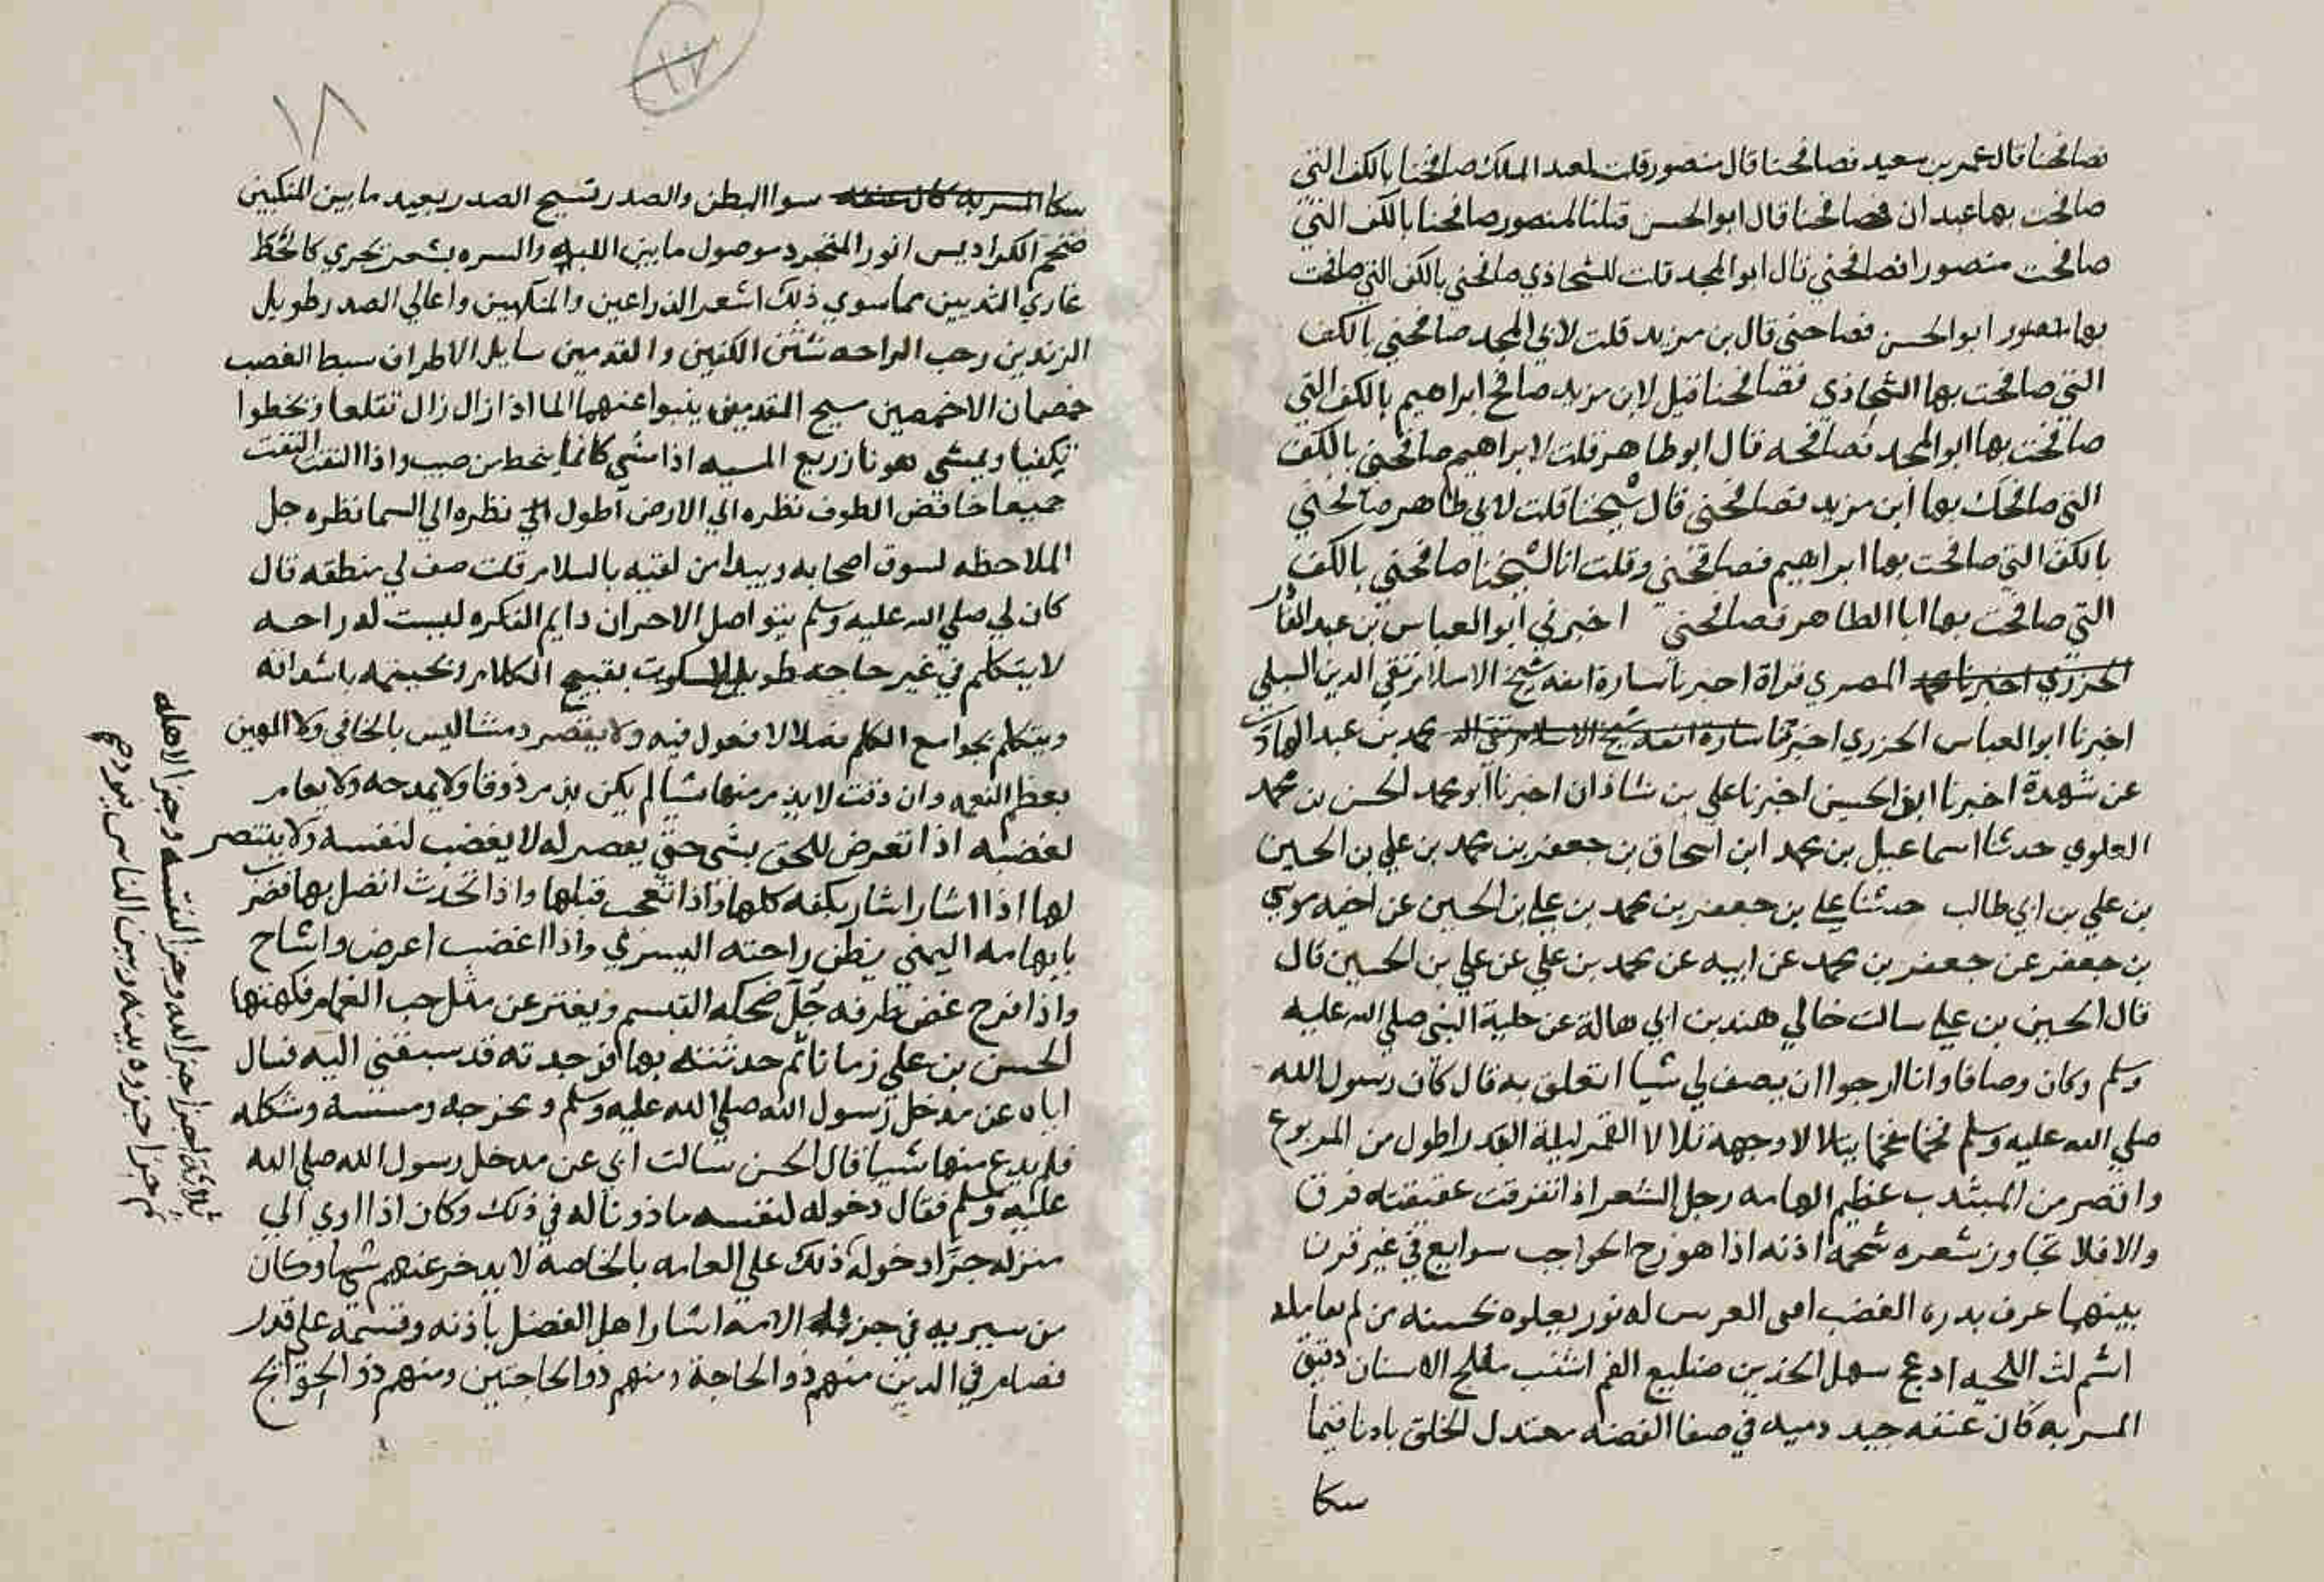 فصافحنا قال عمر بن سعيد فصافحنا قال منصور قلت لعبد الملك صافحنا بالكف التي
صافحت بها عبدان فصافحنا قال ابو الحسن قلنا لمنصور صافحنا بالكف التي
صافحت منصورا فصافحني قال ابو المجد قلت للشحاذي صافحني بالكف التي صافحت
بها منصور ابو الحسن فصاحني قال بن مزيد قلت لابي المجد صافحني بالكف
التي صافحت بها الشحاذي فصافحنا قيل لابن مزيد صافح ابراهيم بالكف التي
صافحت بها ابو المجد فصافحه قال ابو طاهر قلت لابراهيم صافحني بالكف
التي صافحك بها ابن مزيد فصافحني قال شيخنا قلت لابي طاهر صافحني
بالكف التي صافحت بها ابراهيم فصافحني وقلت انا لشيخنا صافحني بالكف
التي صافحت بها ابا الطاهر فصافحني اخبرني ابو العباس بن عبد القادر
المصري قراة اخبرنا سارة ابنه شيخ الاسلام تقي الدين السبكي
اخبرنا ابو العباس الجزري اخبرتنا محمد بن عبد الهادي
عن شهدة اخبرنا ابو الحسين اخبرنا علي بن شاذان اخبرنا ابو محمد الحسن بن محمد
العلوي حدثنا اسماعيل بن محمد ابن اسحاق بن جعفر بن محمد بن علي بن الحسين
بن علي بن ابي طالب حدثنا علي بن جعفر بن محمد بن علي بن الحسين عن اخيه موسي
بن جعفر عن جعفر بن محمد عن ابيه عن محمد بن علي عن علي بن الحسين قال
قال الحسين بن علي سالت خالي هند بن ابي هالة عن حلية النبي صلي الله عليه
وسلم وكان وصافا وانا ارجوا ان يصف لي شيا اتعلق به قال كان رسول الله
صلي الله عليه وسلم فخما مفخما يتلالا وجهه تلالا القمر ليلة القدر اطول من المربوع
واقصر من المشدب عظيم الهامه رجل الشعر اذا انفرقت عقيقته فرق
والا فلا تجاوز شعره شحمة اذنه اذا هو زج الحواجب سوابع في غير قرن
بينهما عرف بدره الغضب اقنى العرس له نور يعلوه تحسبه من لم يتامله
اشم كث اللحيه ادعج سهل الخدين ضليع الفم اشنب مفلج الاسنان دقيق
المسربه كان عنقه جيد دميه في صفا الفضه معتدل الخلق بادنا
سكا
١٨
سكا المسربه كان عنقه سوا البطن والصدر تسيح الصدر بعيد ما بين المنكبين
ضخم الكراديس انور المتجرد موصول ما بين اللبه والسره بشعر يجري كالخط
عاري الثديين مما سوي ذلك اشعر الذراعين والمنكبين واعالي الصدر طويل
الزندين رحب الراحه شثن الكفين والقدمين سايل الاطراف سبط القصب
خمصان الاخمصين مسيح القدمين ينبوا عنهما الما اذا زال زال تقلعا وتخطوا
تكفيا ويمشي هونا زريع المسيه اذا مشي كانما ينحط من صبب واذا التفت التفت
جميعا خافض الطرف نظره الي الارض اطول نظره الي السما نظره جل
الملاحظه لسوق اصحابه ويبدا من لقيه بالسلام قلت صف لي منطقه قال
كان لي صلي الله عليه وسلم يتواصل الاحزان دايم الفكره ليست له راحه
لا يتكلم في غير حاجه طويل السكوت يفتح الكلام ويختمه باشداقه
ويتكلم بجوامع الكلم فصلا لا فضول فيه ولا يقصر دمثا ليس بالجافي ولا المهين
يعظم النعمه وان دقت لا يذم منها شيا لم يكن يذم ذوقا ولا يمدحه ولا يقام
لغضبه اذا تعرض للحق بشي حتي يعصر له لا يغضب لنفسه ولا ينتصر
لها اذا اشار اشار بكفه كلها واذا تعجب قبلها واذا تحدث اتصل بها فضرب
بابهامه اليمني بطن راحته اليسري واذا اغضب اعرض واشاح
واذا فرح غض طرفه جل ضحكه التبسم ويفتر عن مثل حب الغمام فكتمتها
الحسن بن علي زمانا ثم حدثته بها فوجدته قد سبقني اليه فسال
اباه عن مدخل رسول الله صلي الله عليه وسلم ومخرجه ومسسه وشكله
فلم يدع منها شيا قال الحسن سالت ابي عن مدخل رسول الله صلي الله
عليه وسلم فقال دخوله لنفسه ماذونا له في ذلك وكان اذا اوي الي
منزله جزا دخوله ذلك علي العامه بالخاصة لا يدخر عنهم شيا وكان
من سيريه في جز الامه اشار اهل الفضل باذنه وقسمه علي قدر
فضلهم في الدين منهم ذو الحاجة ومنهم ذو الحاجتين ومنهم ذو الحوائج
ثلاثة اجزا جزا لله وجزا لنفسه وجزا لاهله
ثم جزا جزوه بينه وبين الناس